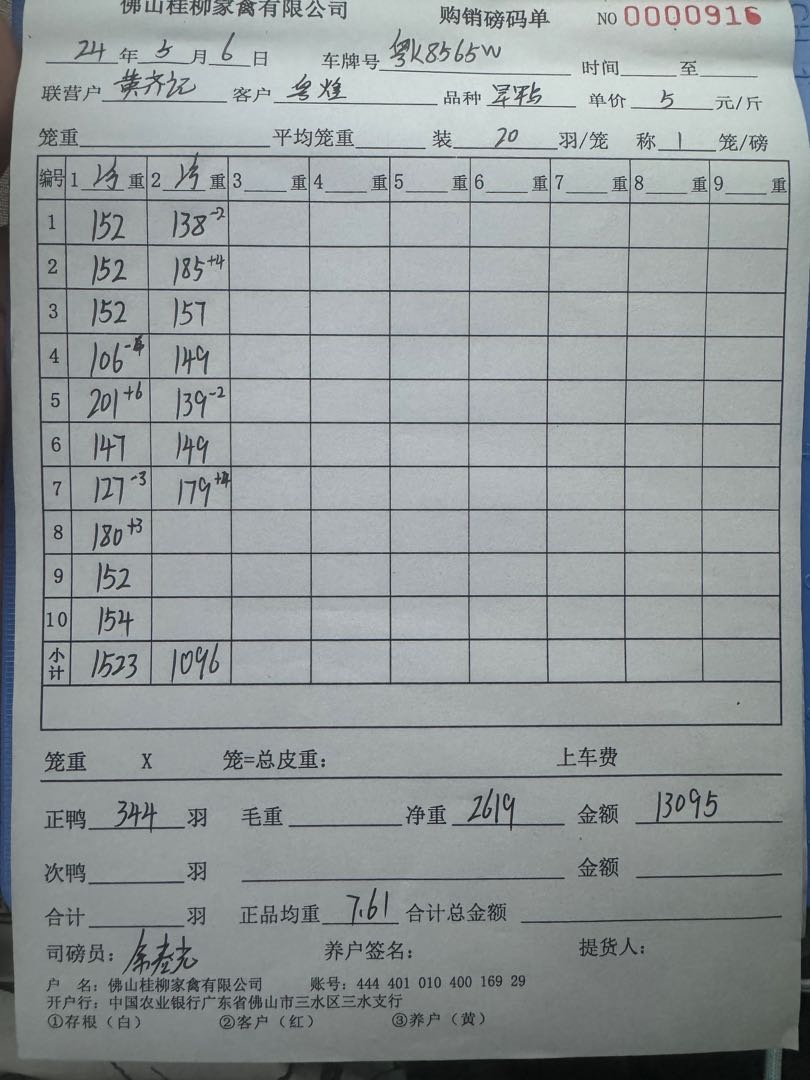 佛山桂柳家禽有限公司 购销磅码单 NO 0000916
24 年 5 月 6 日 车牌号 粤K8565W 时间 至
联营户 黄齐记 客户 粤煌 品种 单价 5 元/斤
笼重 平均笼重 装 20 羽/笼 称 1 笼/磅
编号 1 净 重 2 净 重 3 重 4 重 5 重 6 重 7 重 8 重 9 重
1 152 138-2
2 152 185+4
3 152 157
4 106 149
5 201+6 139-2
6 147 149
7 127-3 179+4
8 180+3
9 152
10 154
小计 1523 1096
笼重 X 笼=总皮重: 上车费
正鸭 344 羽 毛重 净重 2619 金额 13095
次鸭 羽 金额
合计 羽 正品均重 7.61 合计总金额
司磅员: 养户签名: 提货人:
户 名: 佛山桂柳家禽有限公司 账号: 444 401 010 400 169 29
开户行: 中国农业银行广东省佛山市三水区三水支行
①存根(白) ②客户(红) ③养户(黄)